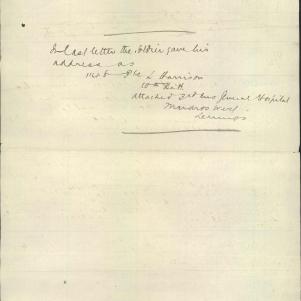 In last letter the soldier gave his
address as
1145 Pte L Harrison
10th Batt
attached 3rd Aus General Hospital
Mudros West
Lemnos